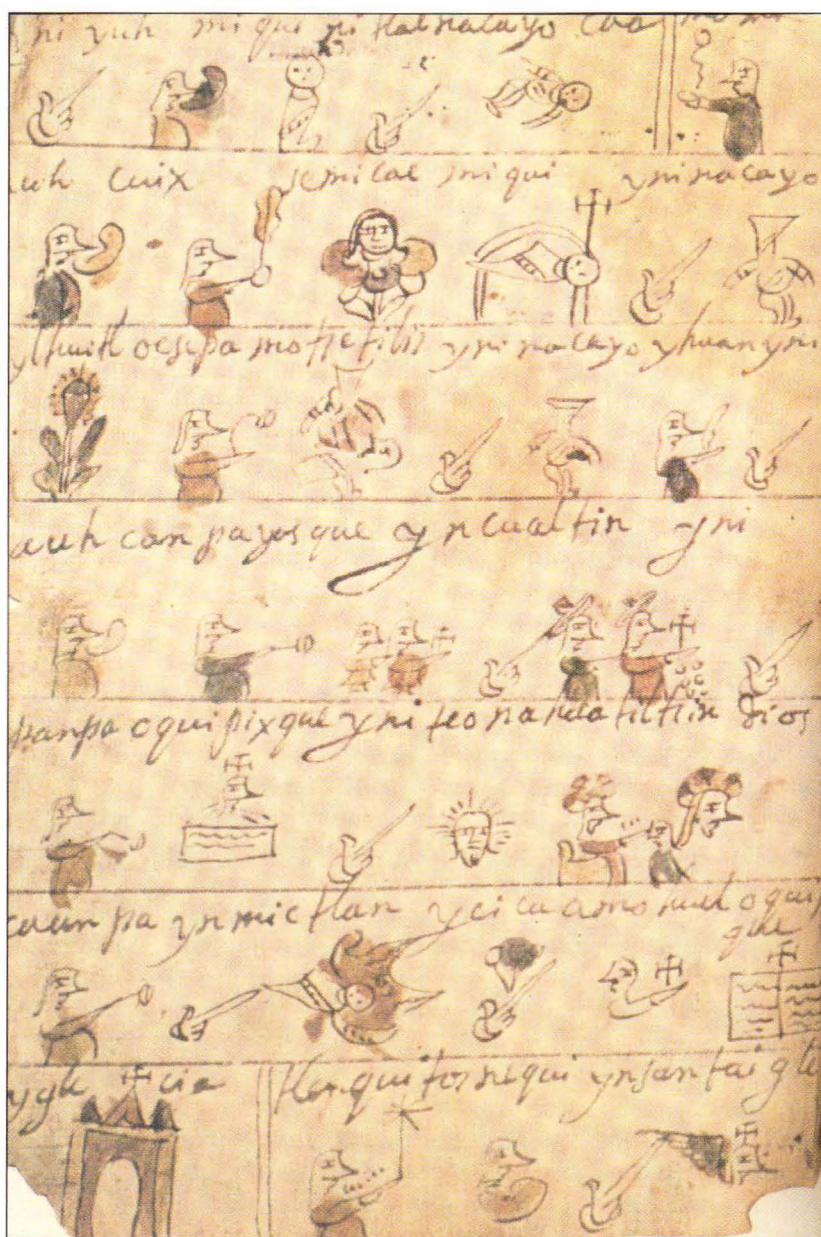 ni yuh miqui ni tlalnacayo
auh cuix semicac miqui yninacayo
ylhuitl ocsepa motzetilis yninacayo yhuan yni
auh can payasque yn cualtin yni
panpa oquipixque yni teonahuatiltzin Dios
canpa yn mictlan yeica amo huel oqui
que
ygle cia tlen quitosnequi yn santa igle